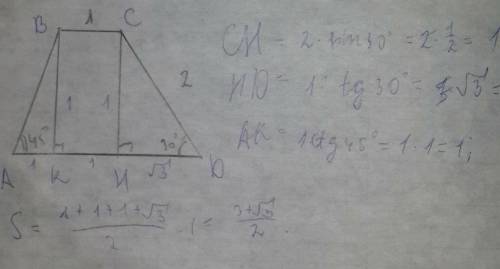 B 1 C
2
1 1
45° 30°
A 1 K 1 H √3 D
CH = 2 · sin 30° = 2 · 1/2 = 1
HD = 1 · tg 30° = √3 =
AK = 1 · tg 45° = 1 · 1 = 1;
S = (1 + 1 + 1 + √3)/2 · 1 = (3 + √3)/2 .